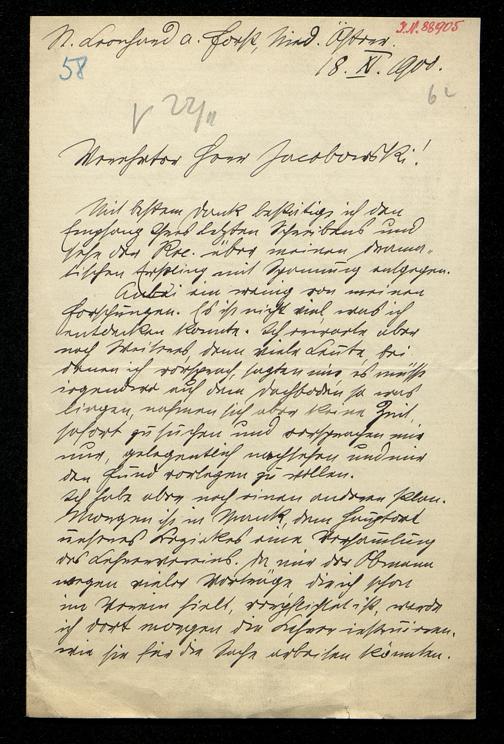 St. Leonhard a. Forst, Nied. Östrr.
J.N. 88905
58
18. XI. 1900.
62
Verehrter Herr Jacobowski!
Mit bestem Dank bestätige ich den
Empfang Ihres letzten Schreibens und
sehe der Rec. über meinen drama-
tischen Erstling mit Spannung entgegen.
Anbei ein wenig von meinen
Forschungen. Es ist nicht viel, was ich
entdecken konnte. Ich erwarte aber
noch Weiteres, denn viele Leute, bei
denen ich vorsprach, sagten mir es müßte
irgendwo auf dem Dachboden so was
liegen, nahmen sich aber keine Zeit,
sofort zu suchen und versprachen mir
nur, gelegentlich nachsehen und mir
den Fund vorlegen zu wollen.
Ich habe aber noch einen anderen Plan.
Morgen ist in Mank, dem Hauptort
unseres Bezirkes eine Versammlung
des Lehrervereins. Da mir der Obmann
wegen vieler Vorträge die ich schon
im Verein hielt, verpflichtet ist, werde
ich dort morgen die Lehrer instruieren,
wie sie für die Sache arbeiten könnten.